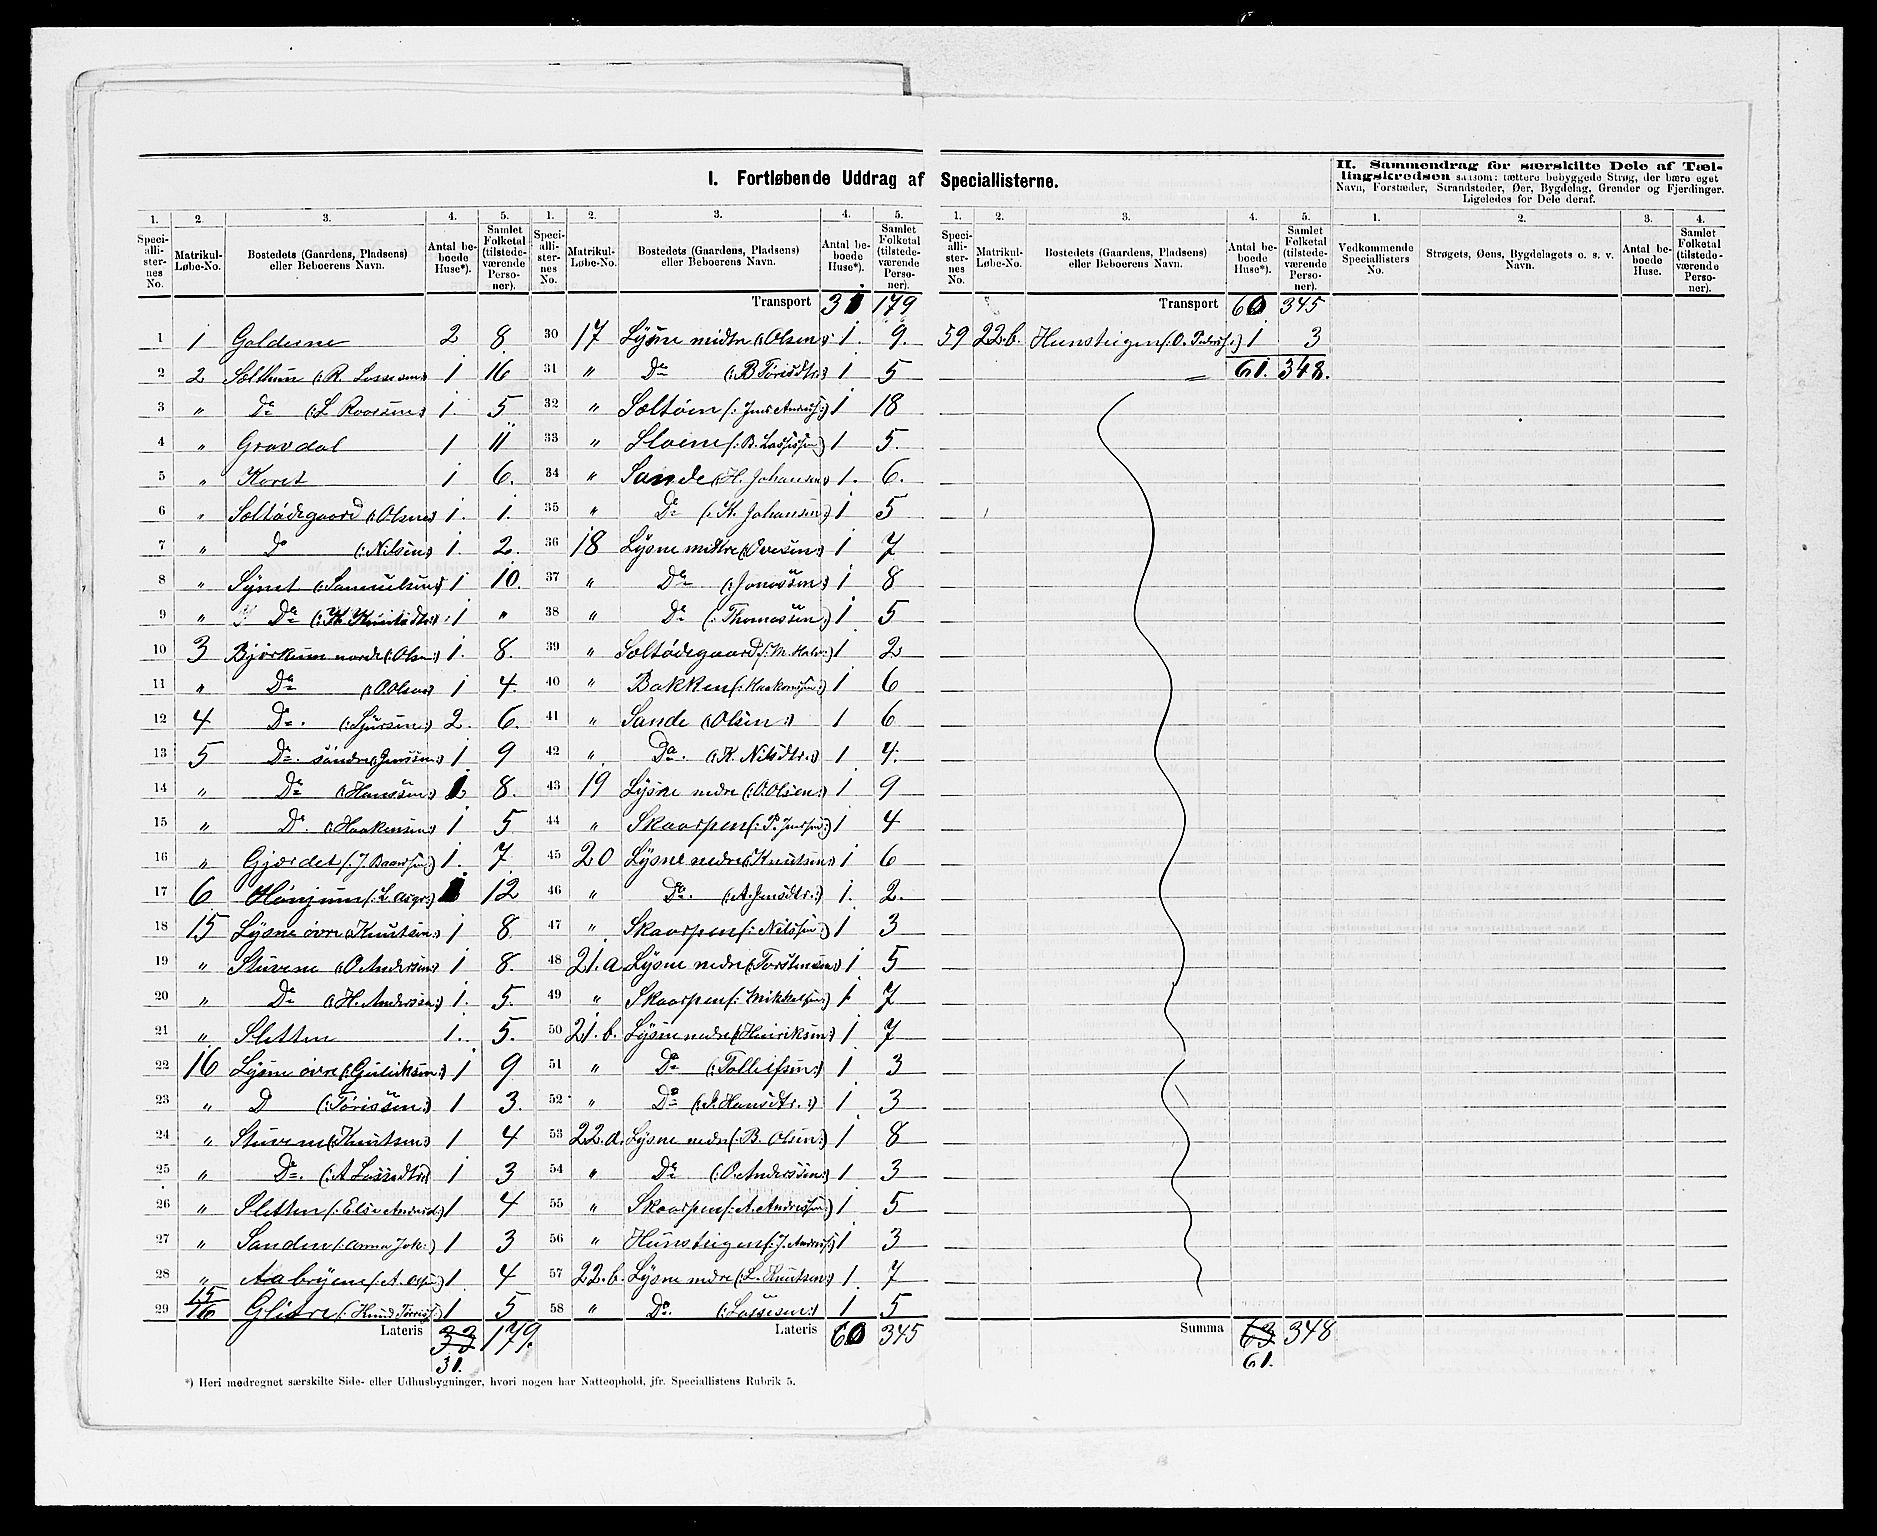 I. Fortløbende Uddrag af Speciallisterne.
II. Sammendrag for særskilte Dele af Tællingskredsen saasom: tættere bebyggede Strøg, der bære eget Navn, Forstæder, Strandsteder, Øer, Bygdelag, Grender og Fjerdinger. Ligeledes for Dele deraf.
1. 2. 3. 4. 5. 1. 2. 3. 4. 5. 1. 2. 3. 4. 5. 1. 2. 3. 4.
Speciallisternes No. Matrikul-Løbe-No. Bostedets (Gaardens, Pladsens) eller Beboerens Navn. Antal beboede Huse*). Samlet Folketal (tilstedeværende Personer).
Speciallisternes No. Matrikul-Løbe-No. Bostedets (Gaardens, Pladsens) eller Beboerens Navn. Antal beboede Huse*). Samlet Folketal (tilstedeværende Personer).
Speciallisternes No. Matrikul-Løbe-No. Bostedets (Gaardens, Pladsens) eller Beboerens Navn. Antal beboede Huse*). Samlet Folketal (tilstedeværende Personer).
Vedkommende Speciallisters No. Strøgets, Øens, Bygdelagets o. s. v. Navn. Antal beboede Huse. Samlet Folketal (tilstedeværende Personer).
1 1 Golderne 2 8.
2 2 Sælthun (: R. Lassesen:) 1 16
3 " Do (: L. Roarsen:) 1. 5
4 " Gravdal 1 11
5 " Koret 1 6.
6 " Sæltødegaard (: Olsen:) 1. 1.
7 " Do (: Nilsen:) 1. 2.
8 " Synet (: Samuelsen:) 1 10.
9 " Do (: K. Knutsdtr:) 1 "
10 3 Bjørkum nordre (: Olsen:) 1. 8.
11 " Do (: O Olsen:) 1 4.
12 4 Do. (: Sjursen:) 2. 6.
13 5 Do. søndre (: Jenssen:) 1. 9
14 " Do (: Hanssen:) 8.
15 " Do. (: Haakensen:) 1 5
16 " Gjærdet (: J. Baarsen:) 1. 7
17 6. Hønjum 12
18 15 Lysne øvre (: Knutsen:) 1 8
19 " Stuvene (: O Andersen:) 1 8.
20 " Do (: H. Andersen:) 1. 5.
21 " Sletten 1. 5.
22 16 Lysne øvre (: Guliksen:) 1 9
23 " D (: Tørissen:) 1 3.
24 " Stuvene (: Knutsen:) 1 4
25 " Do. (: A Lassedtr:) 1 3
26 " Sletten (: Else Andersd:) 1 4
27 " Sanden (: Anna Joh:) 1 3
28 " Aabryene 1. 4
29 15/16 Glitre 1 5
Lateris 33 179.
31.
Transport 31 179
30 17 Lysne midtre (: Olsen:) 1. 9.
31 " Do (: B Tørisdtr:) 1 5
32 " Sæltøen (: Jens Anders:) 1 18
33 " Sloene (: B. Lassessen:) 1 5.
34 " Sande (: H. Johansen:) 1. 6.
35 " Do (: K. Johansen:) 1 5
36 18 Lysne midtre (: Iversen:) 1 7
37 " Do (: Jonassen:) 1 8
38 " Do (: Thomassen:) 1 5
39 " Sæltødegaard (: M. Halv:) 1 2
40 " Bakken (: Haakonsen:) 1 6
41 " Sande (: Olsen:) 1 6
42 " Do. (: K. Nilsdtr:) 1 4.
43 19 Lysne nedre (: O. Olsen:) 1 9
44 " Skaarpen (: P. Jenssen:) 1 4
45 20 Lysne nedre (: Knutsen:) 1 6
46 " Do. (: A. Jensdtr:) 1. 2.
47 " Skaarpen (: Nilssen:) 1 3
48 21. a Lysne nedre (: Torstensen:) 1 5
49 " Skaarpen (: Mikkelsen:) 1 7
50 21. b. Lysne nedre (: Henriksen:) 1 7
51 " Do (: Tolleifsen:) 1 3
52 " Do (: S. Hansdtr.:) 1 3
53 22. a. Lysne nedre (: B. Olsen:) 1 8
54 " Do (: O. Anderssen:) 1 3
55 " Skaarpen (: A. Anderssen:) 1 5
56 " Hunsteigen (: J. Anders:) 1 3
57 22. b. Lysne nedre (: L. Knutsen:) 1. 7
58 " Do. (: Lassesen:) 1 5
Lateris 60 345
Transport 60 345
59 22. b. Hunsteigen (: O. Peders:) 1 3
61. 348.
Summa 63 348
61.
*) Heri medregnet særskilte Side- eller Udhusbygninger, hvori nogen har Natteophold, jfr. Speciallistens Rubrik 5.